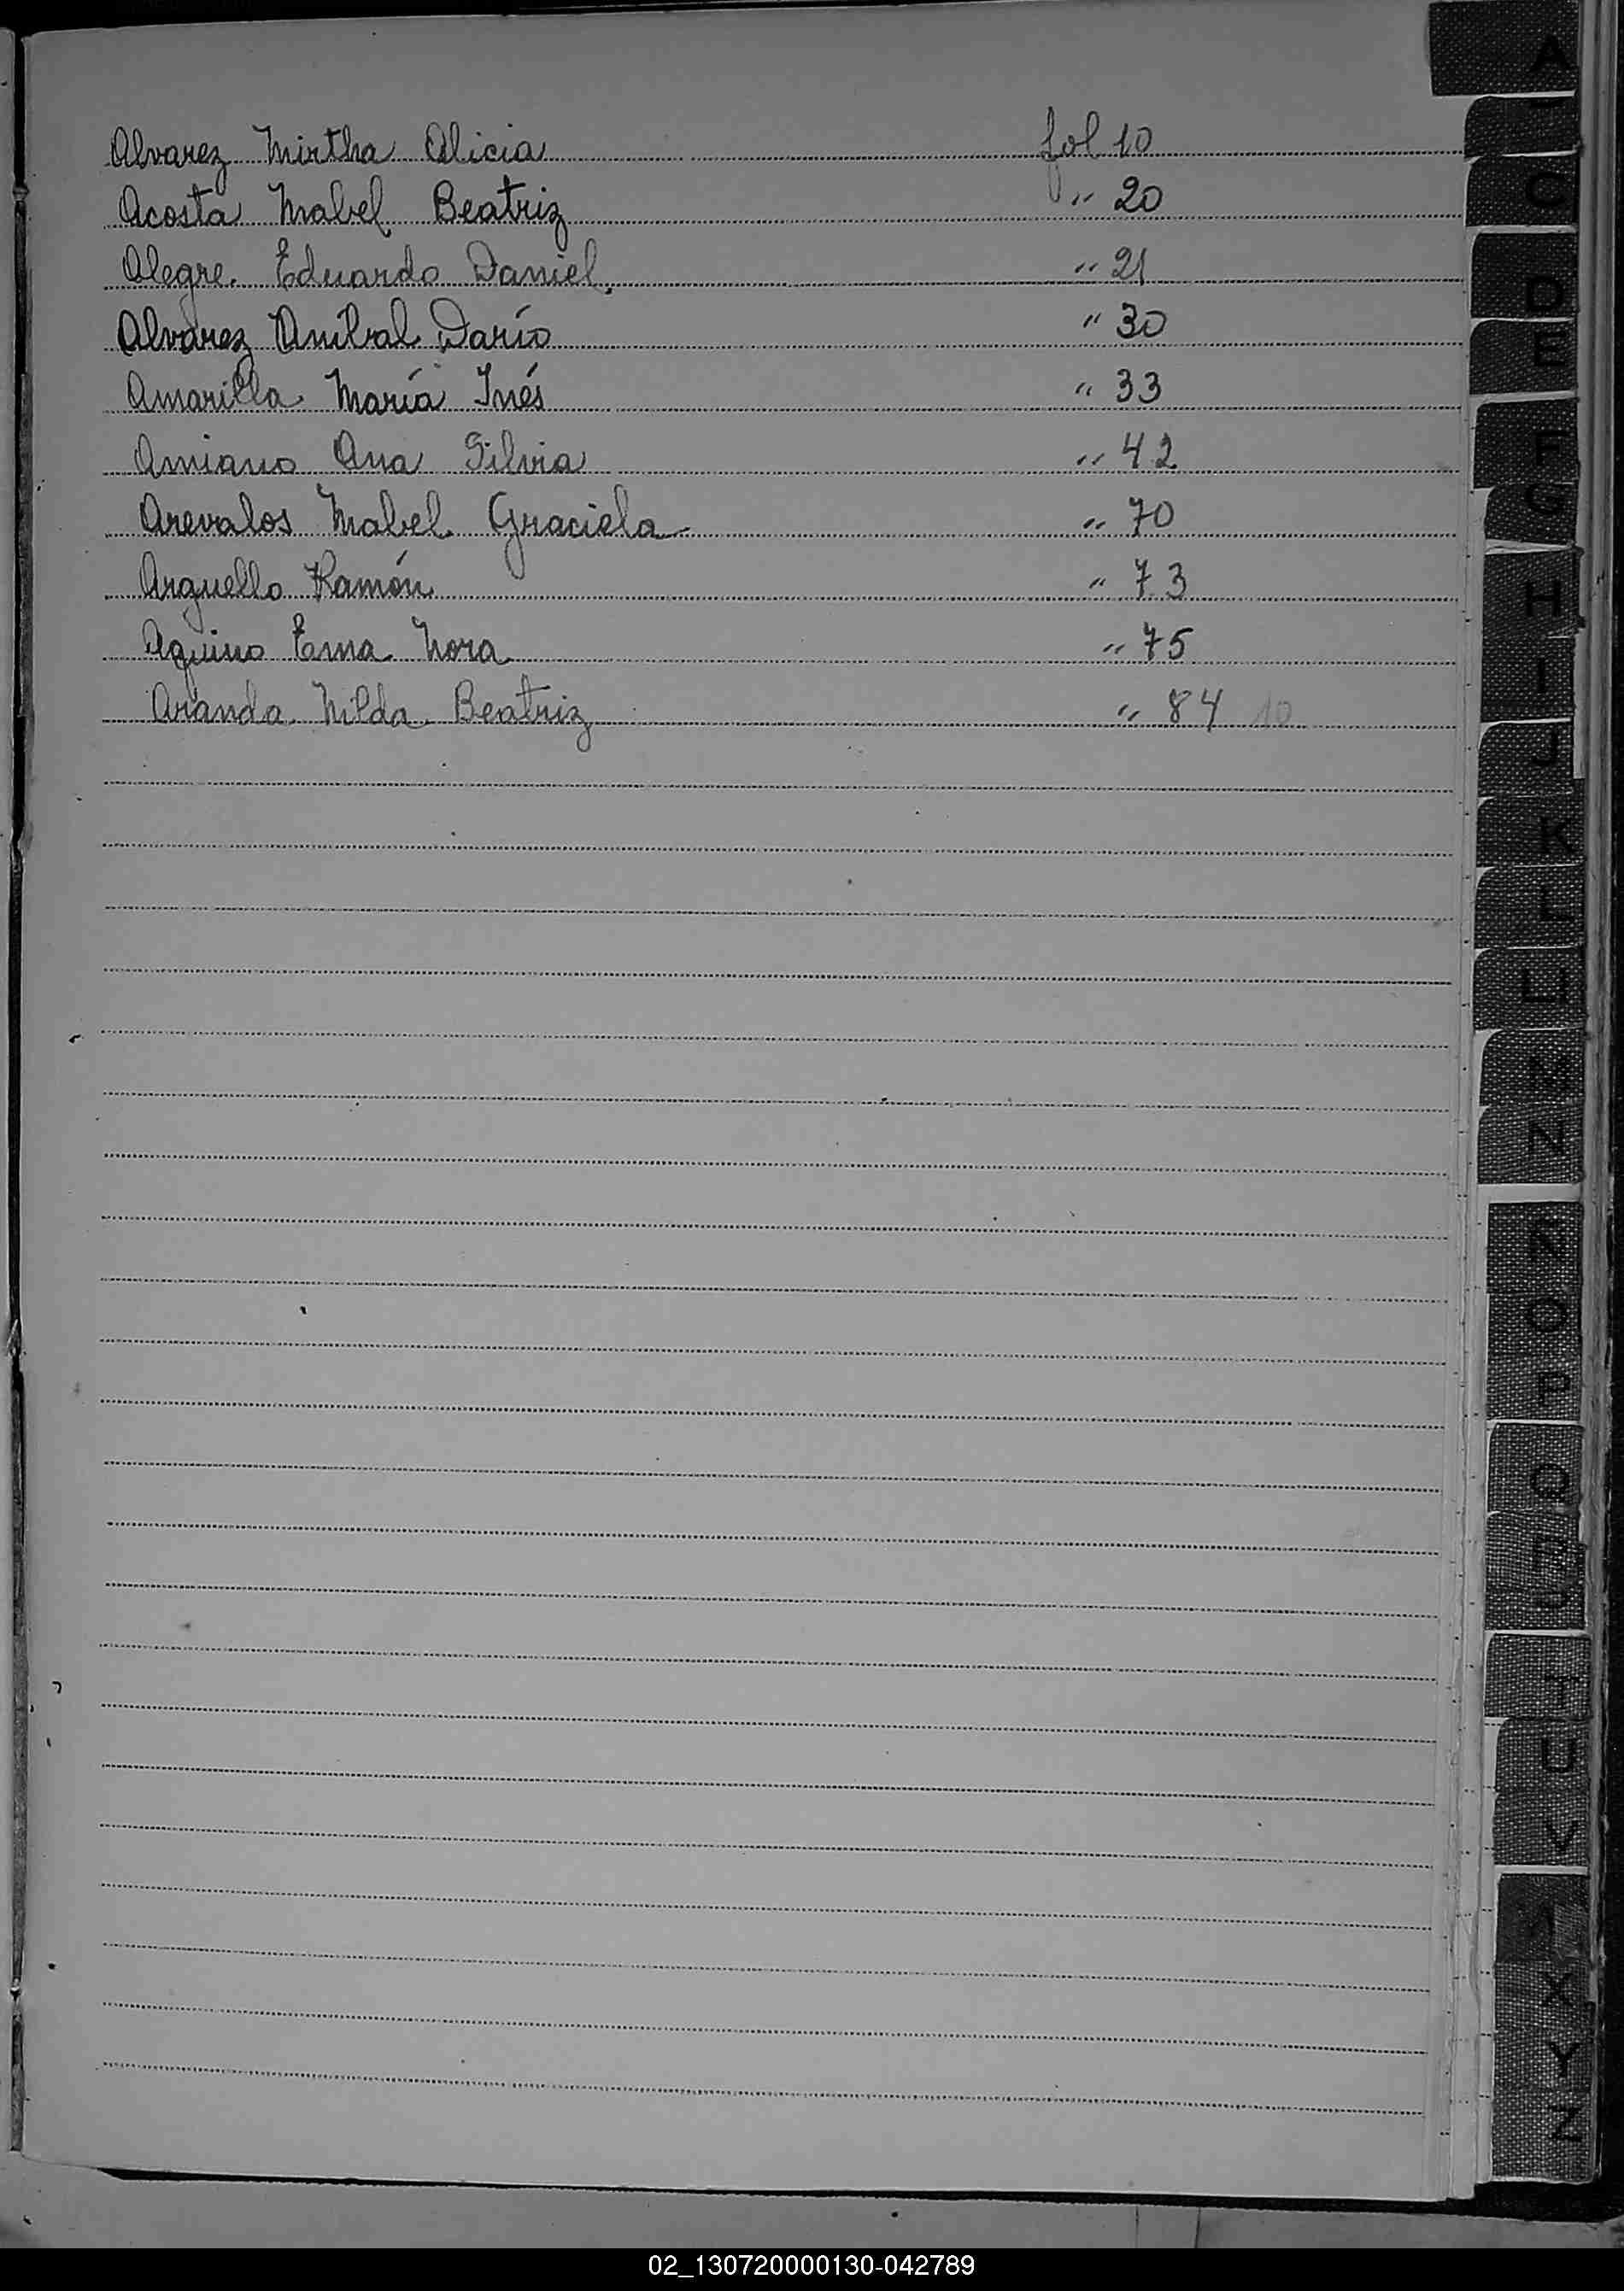 Alvarez Mirtha Alicia fol 10
Acosta Mabel Beatriz " 20
Alegre. Eduardo Daniel. " 21
Alvarez Aníbal Darío " 30
Amarilla María Inés " 33
Amiano Ana Silvia " 42
Arevalos Mabel Graciela " 70
Arguello Ramón " 73
Aquino Ema Nora " 75
Aranda Nilda Beatriz " 84 10
A
C
D
E
F
G
H
I
J
K
L
Ll
M
N
Ñ
O
P
Q
R
T
U
V
X
Y
Z
02_130720000130-042789